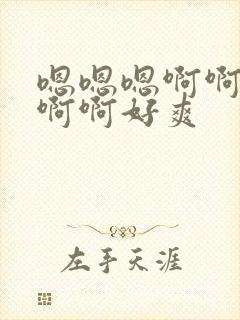 嗯嗯嗯啊啊
啊啊好爽
左手天涯